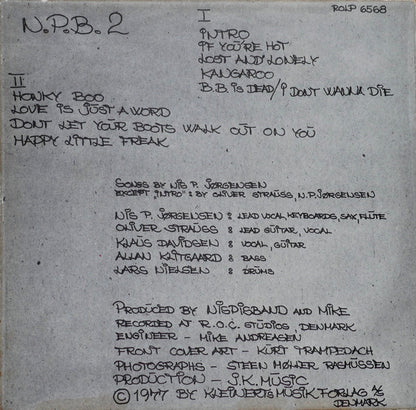 N.P.B. 2
ROLP 6568
I
INTRO
IF YOU'RE HOT
LOST AND LONELY
KANGAROO
B.B. IS DEAD/I DONT WANNA DIE
II
HONKY BOO
LOVE IS JUST A WORD
DONT LET YOUR BOOTS WALK OUT ON YOU
HAPPY LITTLE FREAK
SONGS BY NIS P. JØRGENSEN
EXCEPT "INTRO" : BY OLIVER STRAUSS, N.P. JØRGENSEN
NIS P. JØRGENSEN : LEAD VOCAL, KEYBOARDS, SAX, FLUTE
OLIVER STRAUSS : LEAD GUITAR, VOCAL
KLAUS DAVIDSEN : VOCAL, GUITAR
ALLAN KLITGAARD : BASS
LARS NIELSEN : DRUMS
PRODUCED BY NISPISBAND AND MIKE
RECORDED AT R.O.C. STUDIOS, DENMARK
ENGINEER - MIKE ANDREASEN
FRONT COVER ART - KURT TRAMPEDACH
PHOTOGRAPHS - STEEN MØLLER RASMUSSEN
PRODUCTION - J.K. MUSIC
© 1977 BY KLEINERTS MUSIK FORLAG A/S
DENMARK